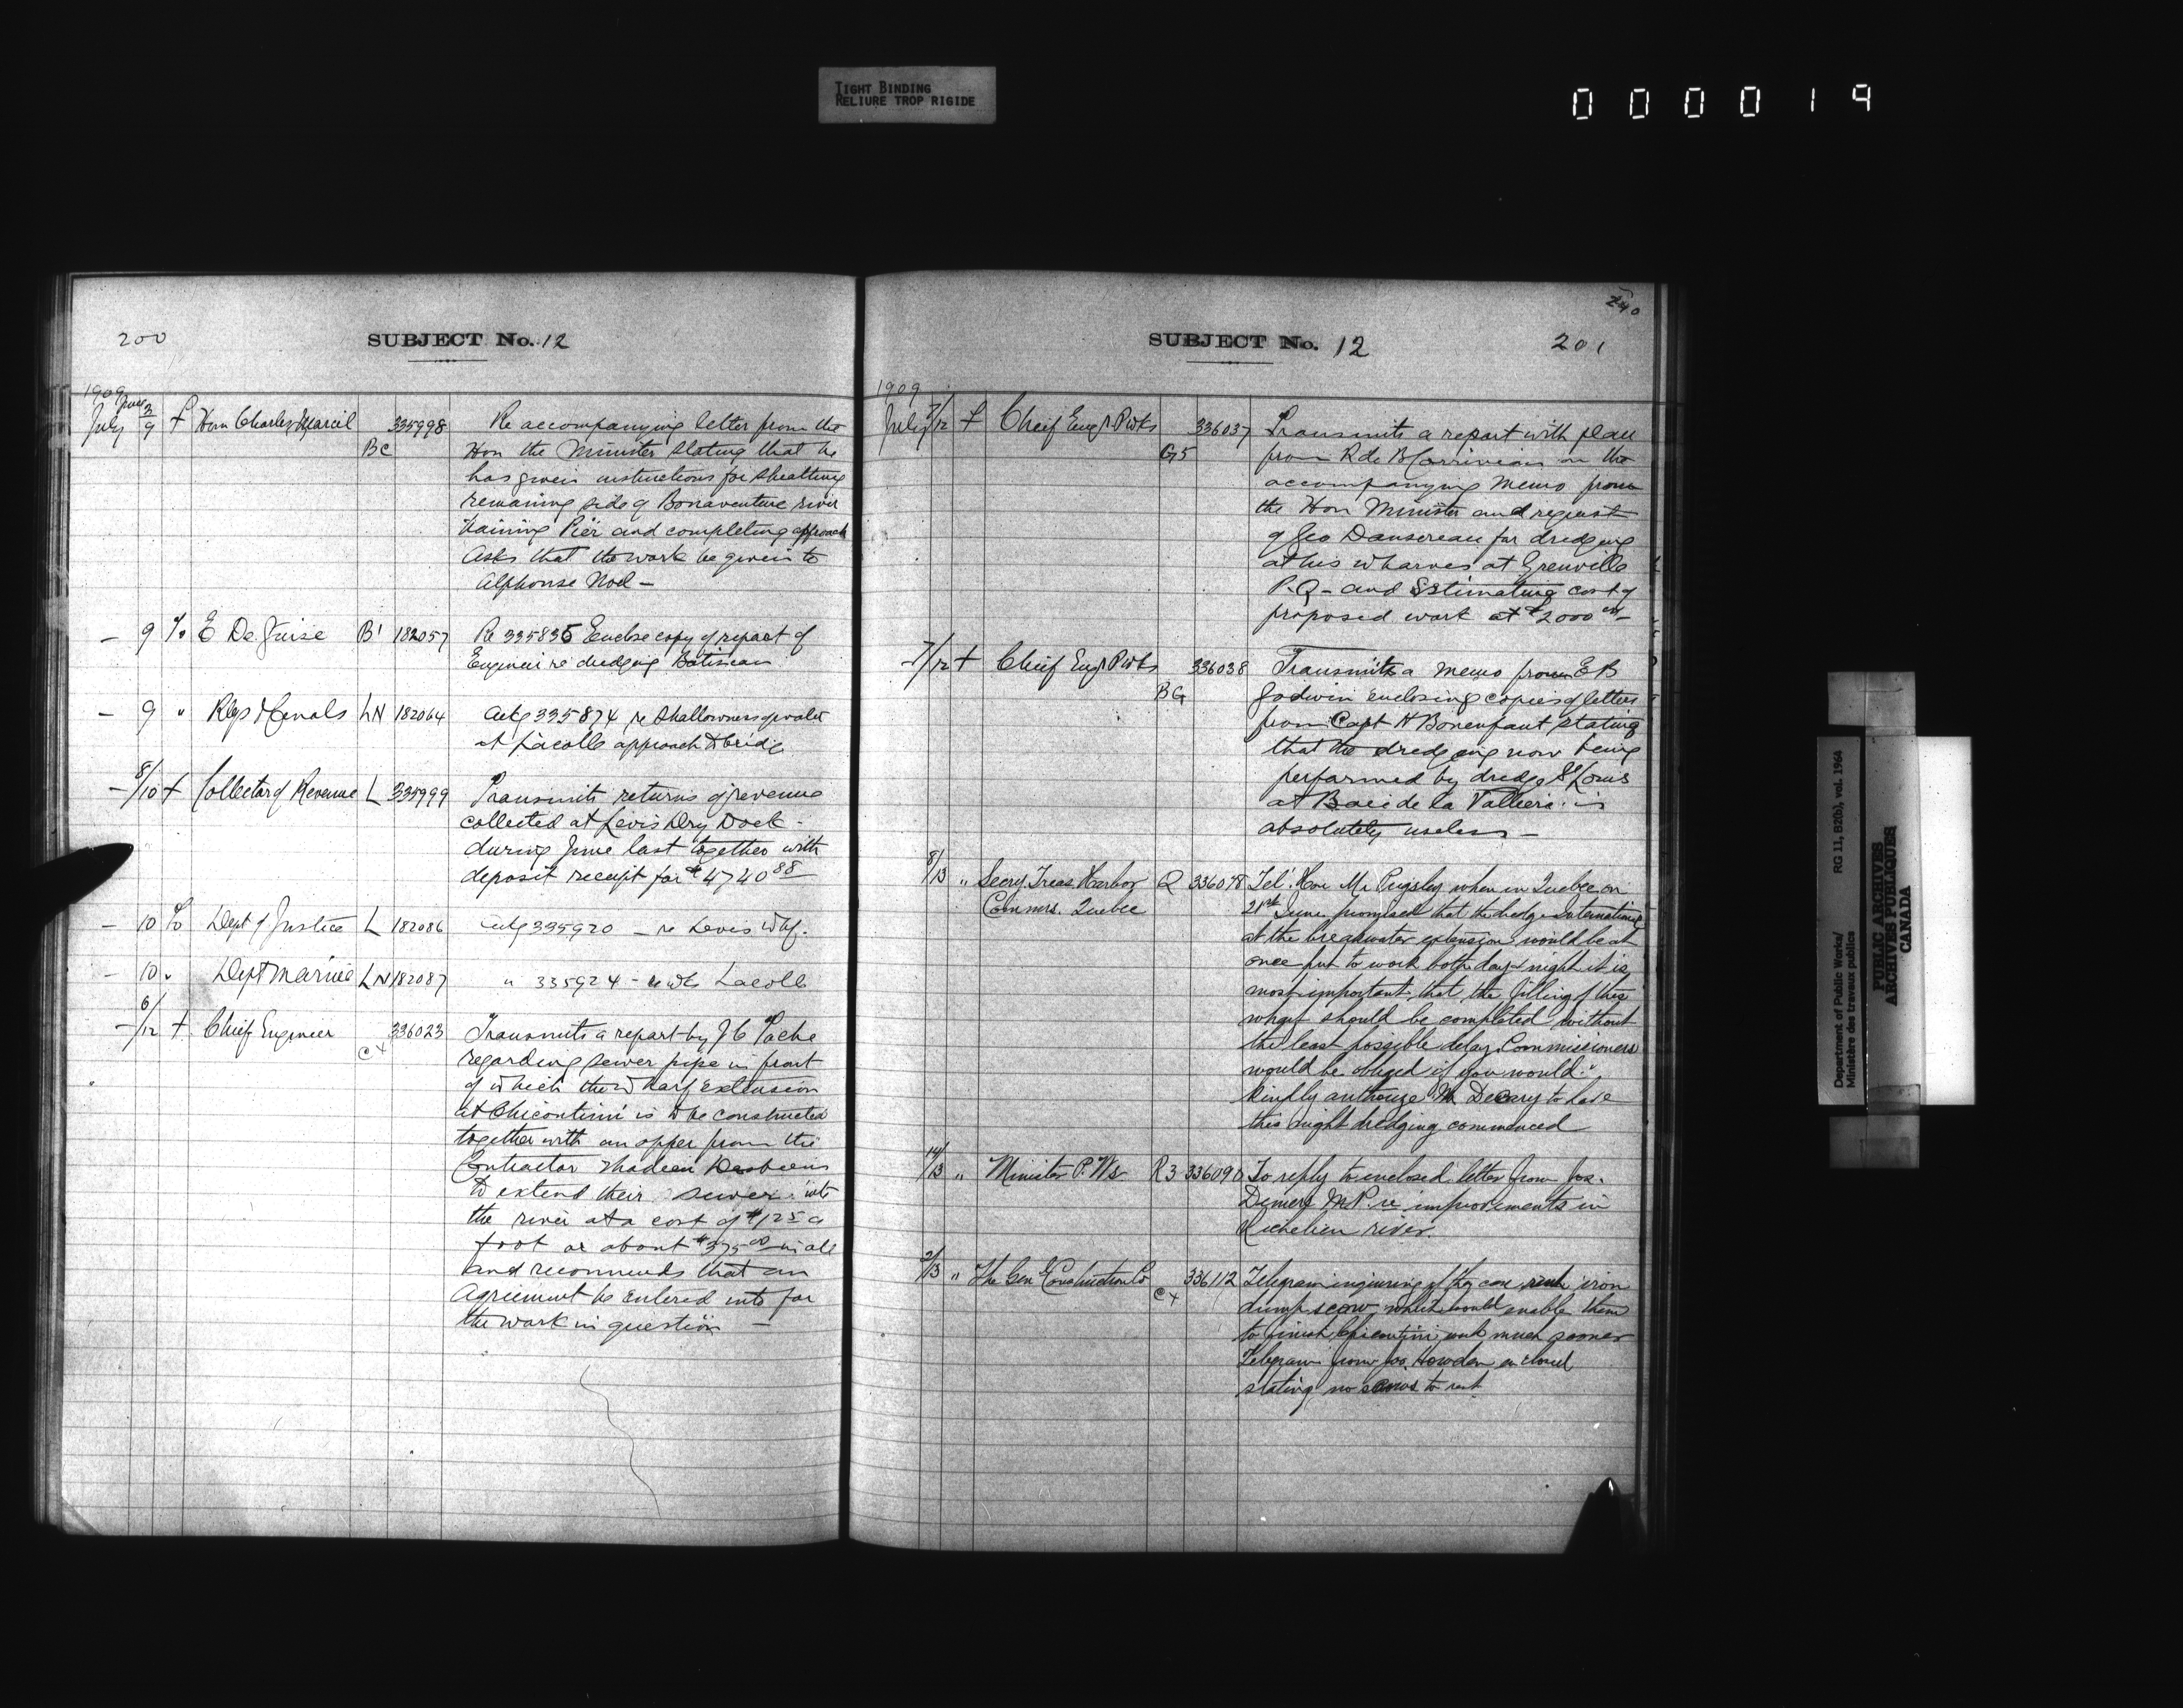 TIGHT BINDING
RELIURE TROP RIGIDE
000019
200
SUBJECT No. 12
1909
July 9 f Hon Charles Marcil BC 335998 Re accompanying letter from the
Hon the Minister stating that he
has given instructions for sheathing
remaining side of Bonaventure river
training Pier and completing approach
Asks that the work be given to
Alphonse Noel —
— 9 To E De Guise B' 182057 Re 335835 Enclose copy of report of
Engineer re dredging Batiscan
— 9 " Rlys & Canals LN 182064 Ackg 335874 re shallowness of water
at Lacolle approach to bridge
— 8/10 f Collector of Revenue L 335999 Transmits returns of revenue
collected at Levis Dry Dock -
during June last together with
deposit receipt for $4740 88
— 10 To Dept of Justice L 182086 Ackg 335920 — re Levis Whf.
— 10 " Dept Marine LN 182087 " 335924 - re Lacolle
— 6/12 f Chief Engineer C+ 336023 Transmits a report by J C Tache
regarding sewer pipe in front
of which the Wharf Extension
at Chicoutimi is to be constructed
together with an offer from the
Contractor
to extend their sewer into
the river at a cost of $1.25 a
foot or about $375.00 in all
and recommends that an
Agreement be entered into for
the work in question —
240
SUBJECT No. 12
201
1909
July 7/12 f Chief Engr. P Wks G5 336037 Transmits a report with plan
from R de B Corriveau on the
accompanying Memo from
the Hon Minister and request
of Geo Dansereau for dredging
at his wharves at Grenville
P.Q - and Estimating cost of
proposed work at $2000 —
— 7/12 f Chief Engr P Wks BG 336038 Transmits a memo from E B
Godwin enclosing copies of letters
from Capt H Bonenfant stating
that the dredging now being
performed by dredge St Louis
at Baie de la Valliere is
absolutely useless —
8/13 " Secry. Treas. Harbor Q 336078 Tel. Hon Mr Pugsley when in Quebec on
Commrs. Quebec
21st June promised that the dredge International
at the breakwater extension would be at
once put to work both day & night it is
most important that the filling of this
wharf should be completed without
the least possible delay. Commissioners
would be obliged if you would
kindly authorize Mr Decary to have
this night dredging commenced
14/13 " Minister P. Ws R3 336090 To reply to enclosed letter from Jos.
Demers M.P. re improvements in
Richelieu river.
2/13 " The Gen Construction Co C+ 336112 Telegram inquiring if they can rent iron
dump scow which would enable them
to finish Chicoutimi work much sooner
Telegram from Jas. Howden enclosed
stating no scows to rent
Department of Public Works/ RG 11, B2(b), vol. 1964
Ministère des travaux publics
PUBLIC ARCHIVES
ARCHIVES PUBLIQUES
CANADA